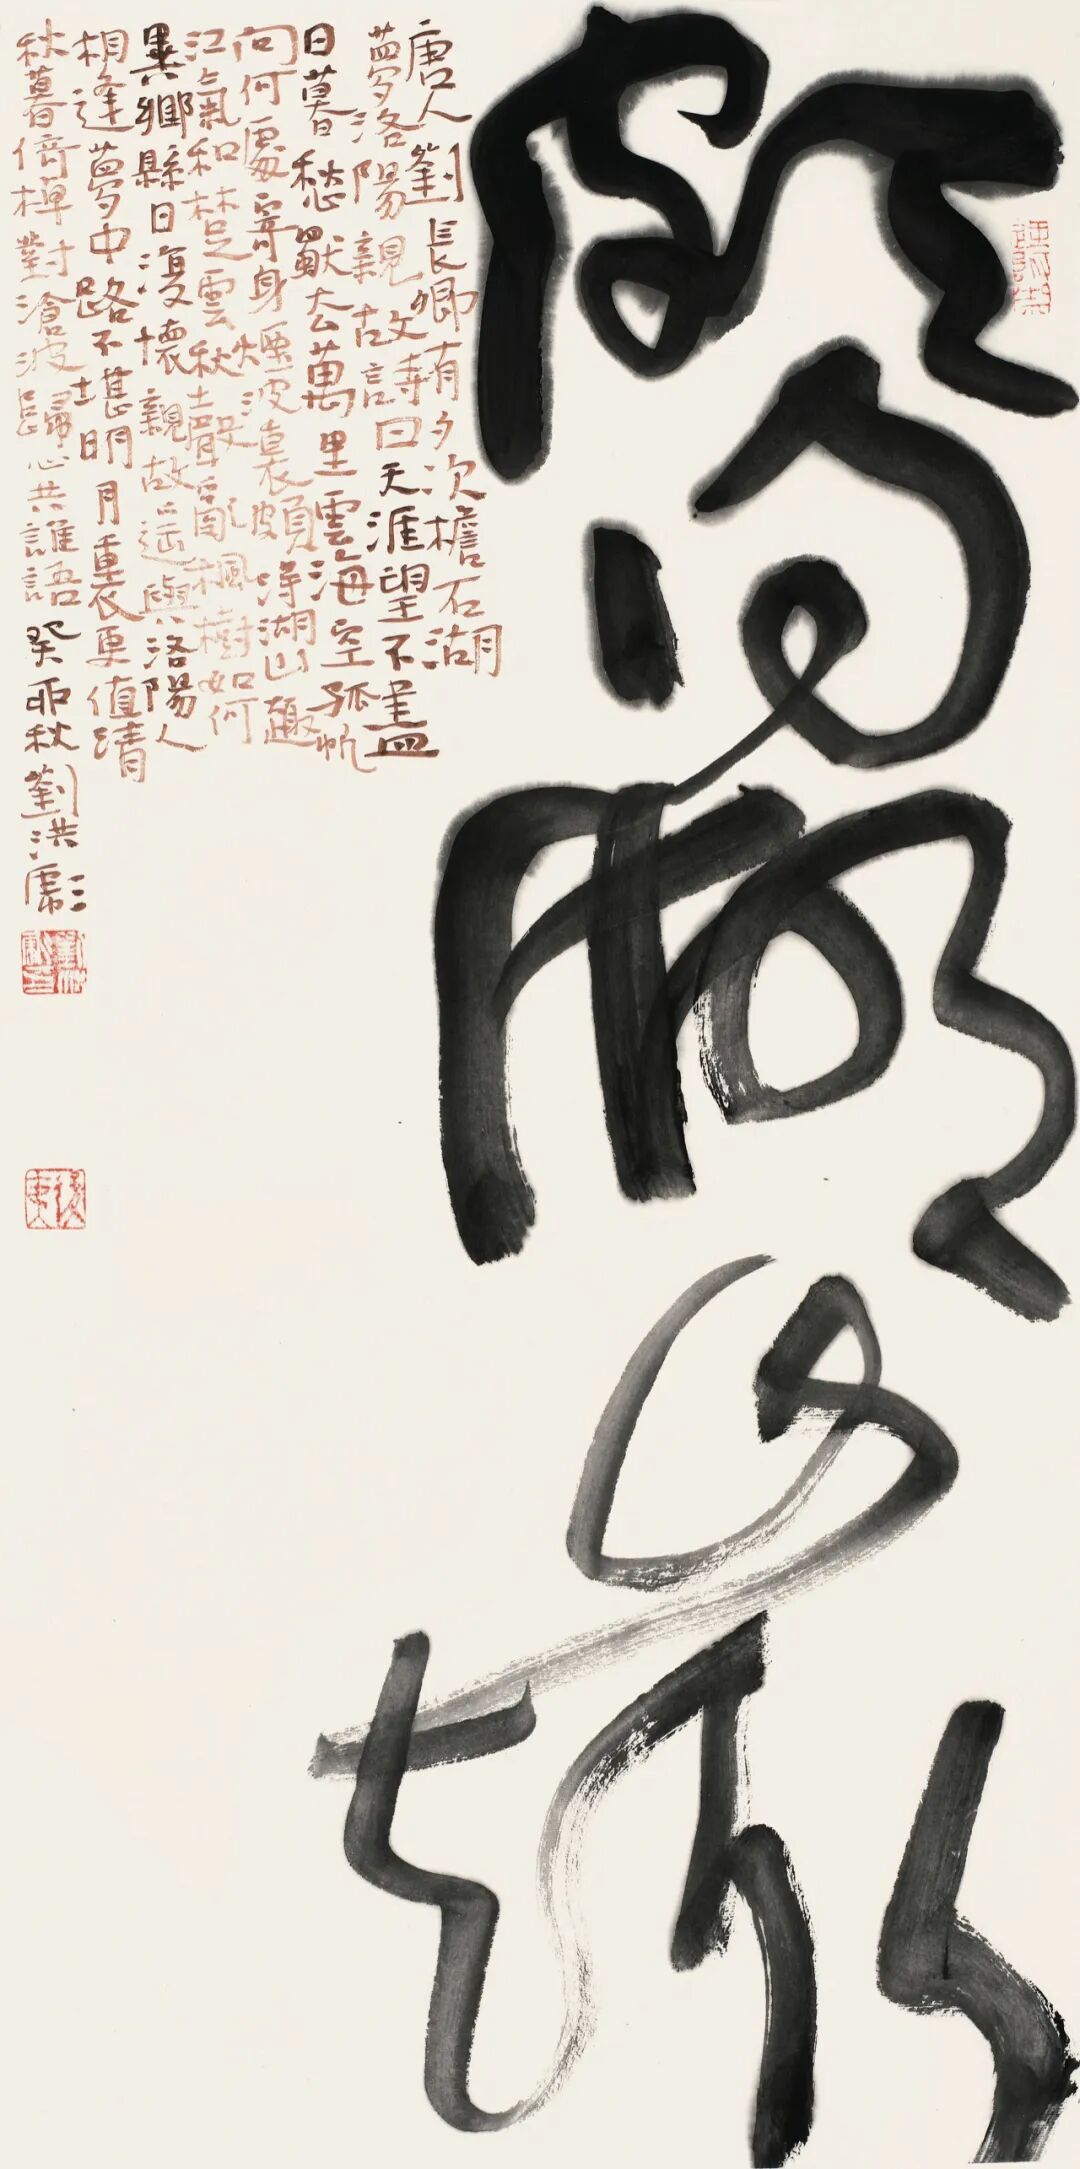 頗得湖山趣
唐人劉長卿有夕次檐石湖
夢洛陽親故詩曰天涯望不盡
日暮愁獨去萬里雲海空孤帆
向何處寄身煙波裏頗得湖山趣
江氣和楚雲秋聲亂楓樹如何
異鄉縣日復懷親故遙與洛陽人
相逢夢中路不堪明月裏更值清
秋暮倚棹對滄波歸心共誰語癸卯秋劉洪彪